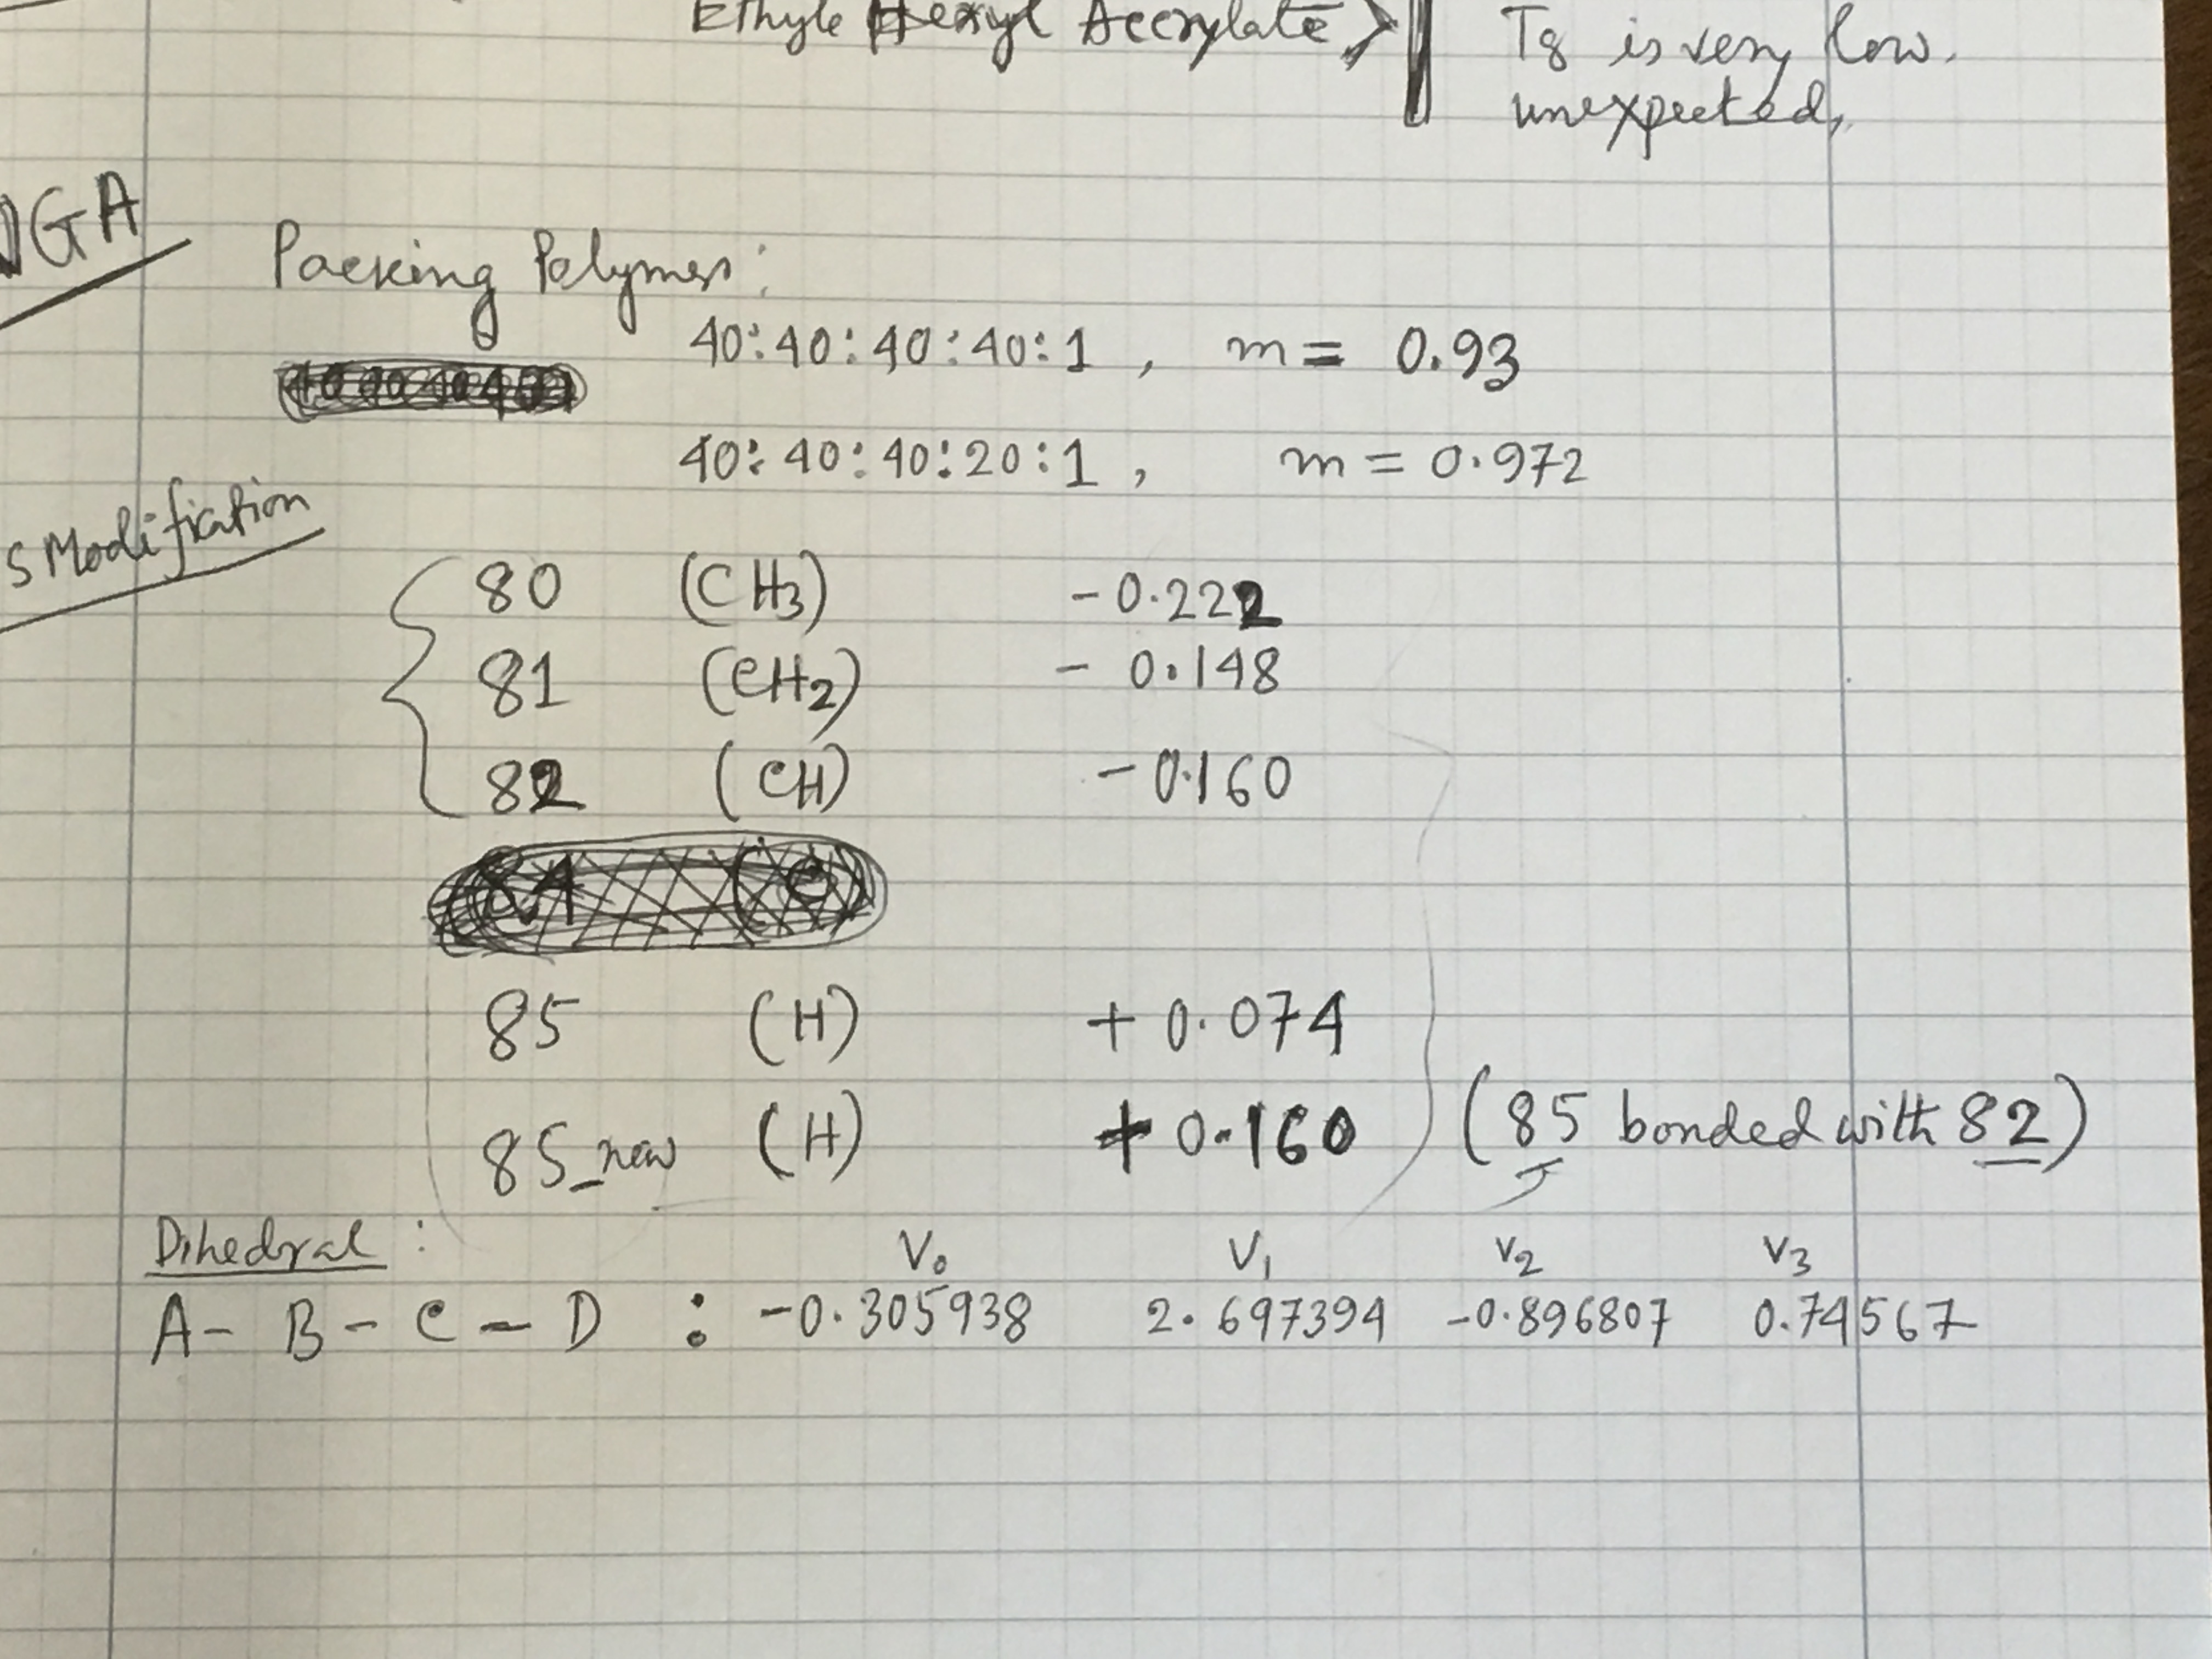 Ethyle Hexyl Accrylate > Tg is very low.
unexpected,
DGA
Packing Polymers:
40:40:40:40:1 , m = 0.93
40:40:40:20:1 , m = 0.972
s Modification
80 (CH3) -0.222
81 (CH2) - 0.148
82 (CH) -0.160
85 (H) + 0.074
85_new (H) + 0.160 (85 bonded with 82)
Dihedral : V0 V1 V2 V3
A - B - C - D : -0.305938 2.697394 -0.896807 0.74567